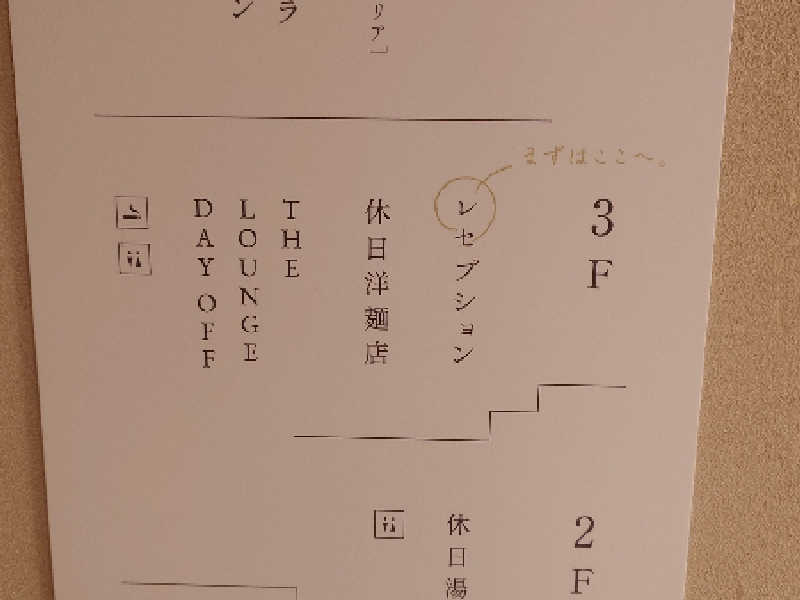 リア」
ラ
ン
3F
まずはここへ。
レセプション
休日洋麺店
THE
LOUNGE
DAY OFF
2F
休日湯